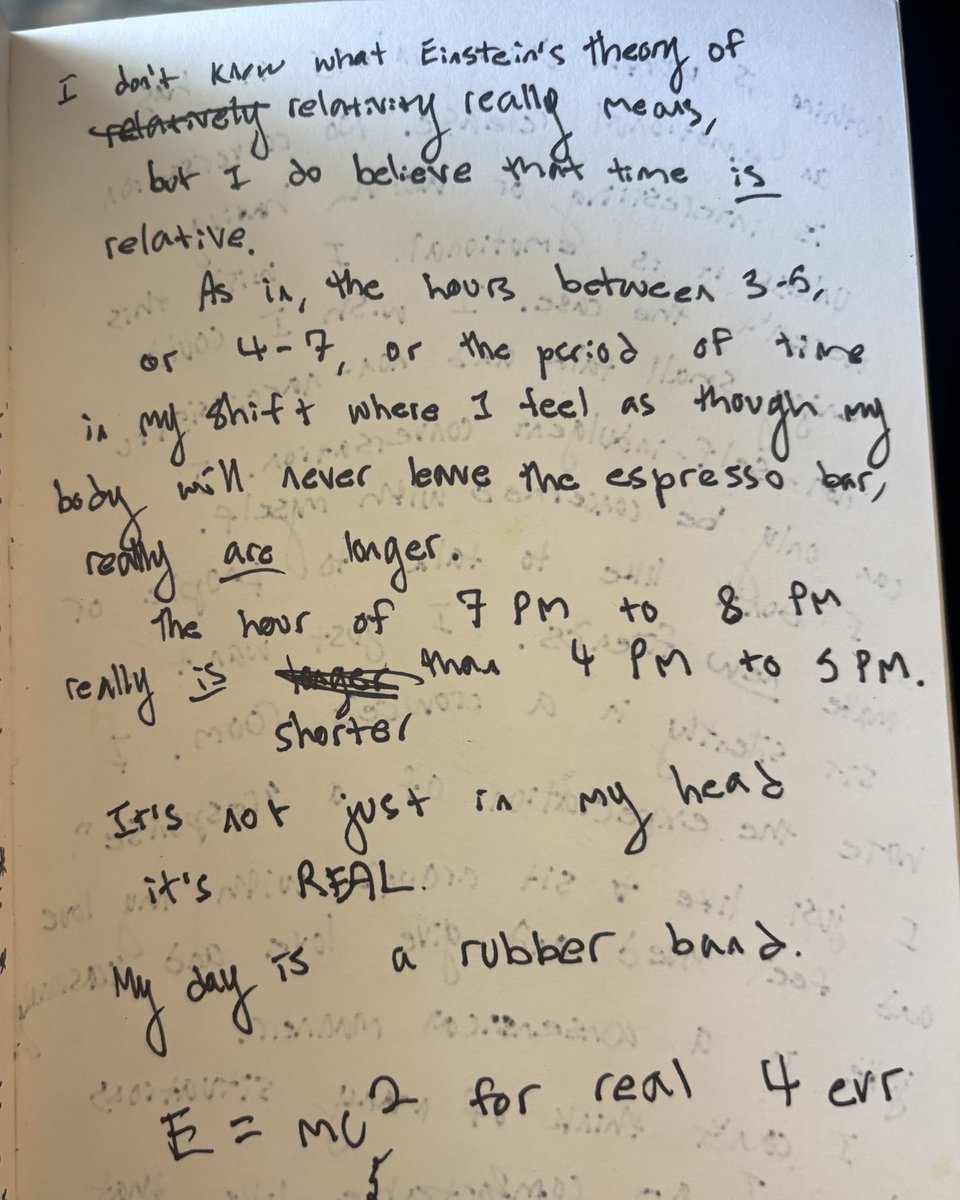 I don't know what Einstein's theory of
relatively relativity really means,
but I do believe that time is
relative.
As in, the hours between 3-6,
or 4-7, or the period of time
in my shift where I feel as though my
body will never leave the espresso bar,
really are longer.
The hour of 7 PM to 8 PM
really is longer than 4 PM to 5 PM.
shorter
It's not just in my head
it's REAL.
My day is a rubber band.
E = mc² for real 4 evr